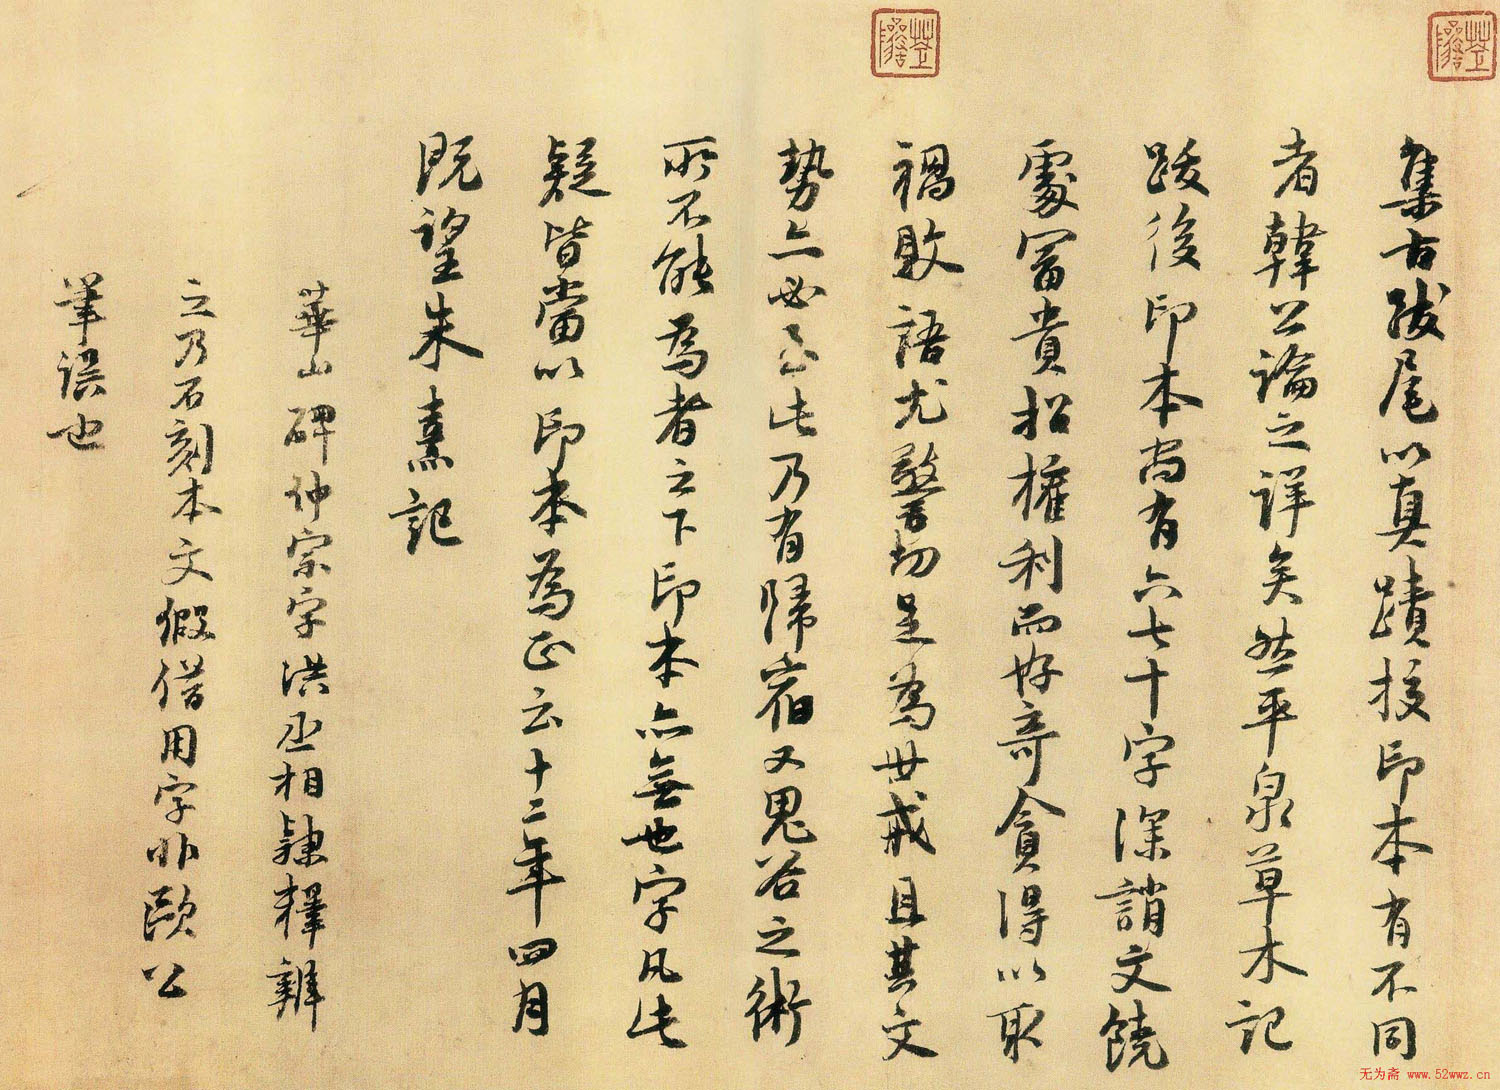 集古跋尾以真蹟挍印本有不同
者韓公論之詳矣然平泉草木記
跋後印本尚有六七十字深誚文饒
處富貴招權利而好奇貪得以取
禍敗語尤警切足為世戒且其文
勢亦必至此乃有歸宿又鬼谷之術
所不能為者之下印本亦無也字凡此
疑皆當以印本為正云十二年四月
既望朱熹記
華山碑仲宗字洪丞相隷釋辨
之乃石刻本文假借用字非歐公
筆誤也
无为斋 www.52wwz.cn